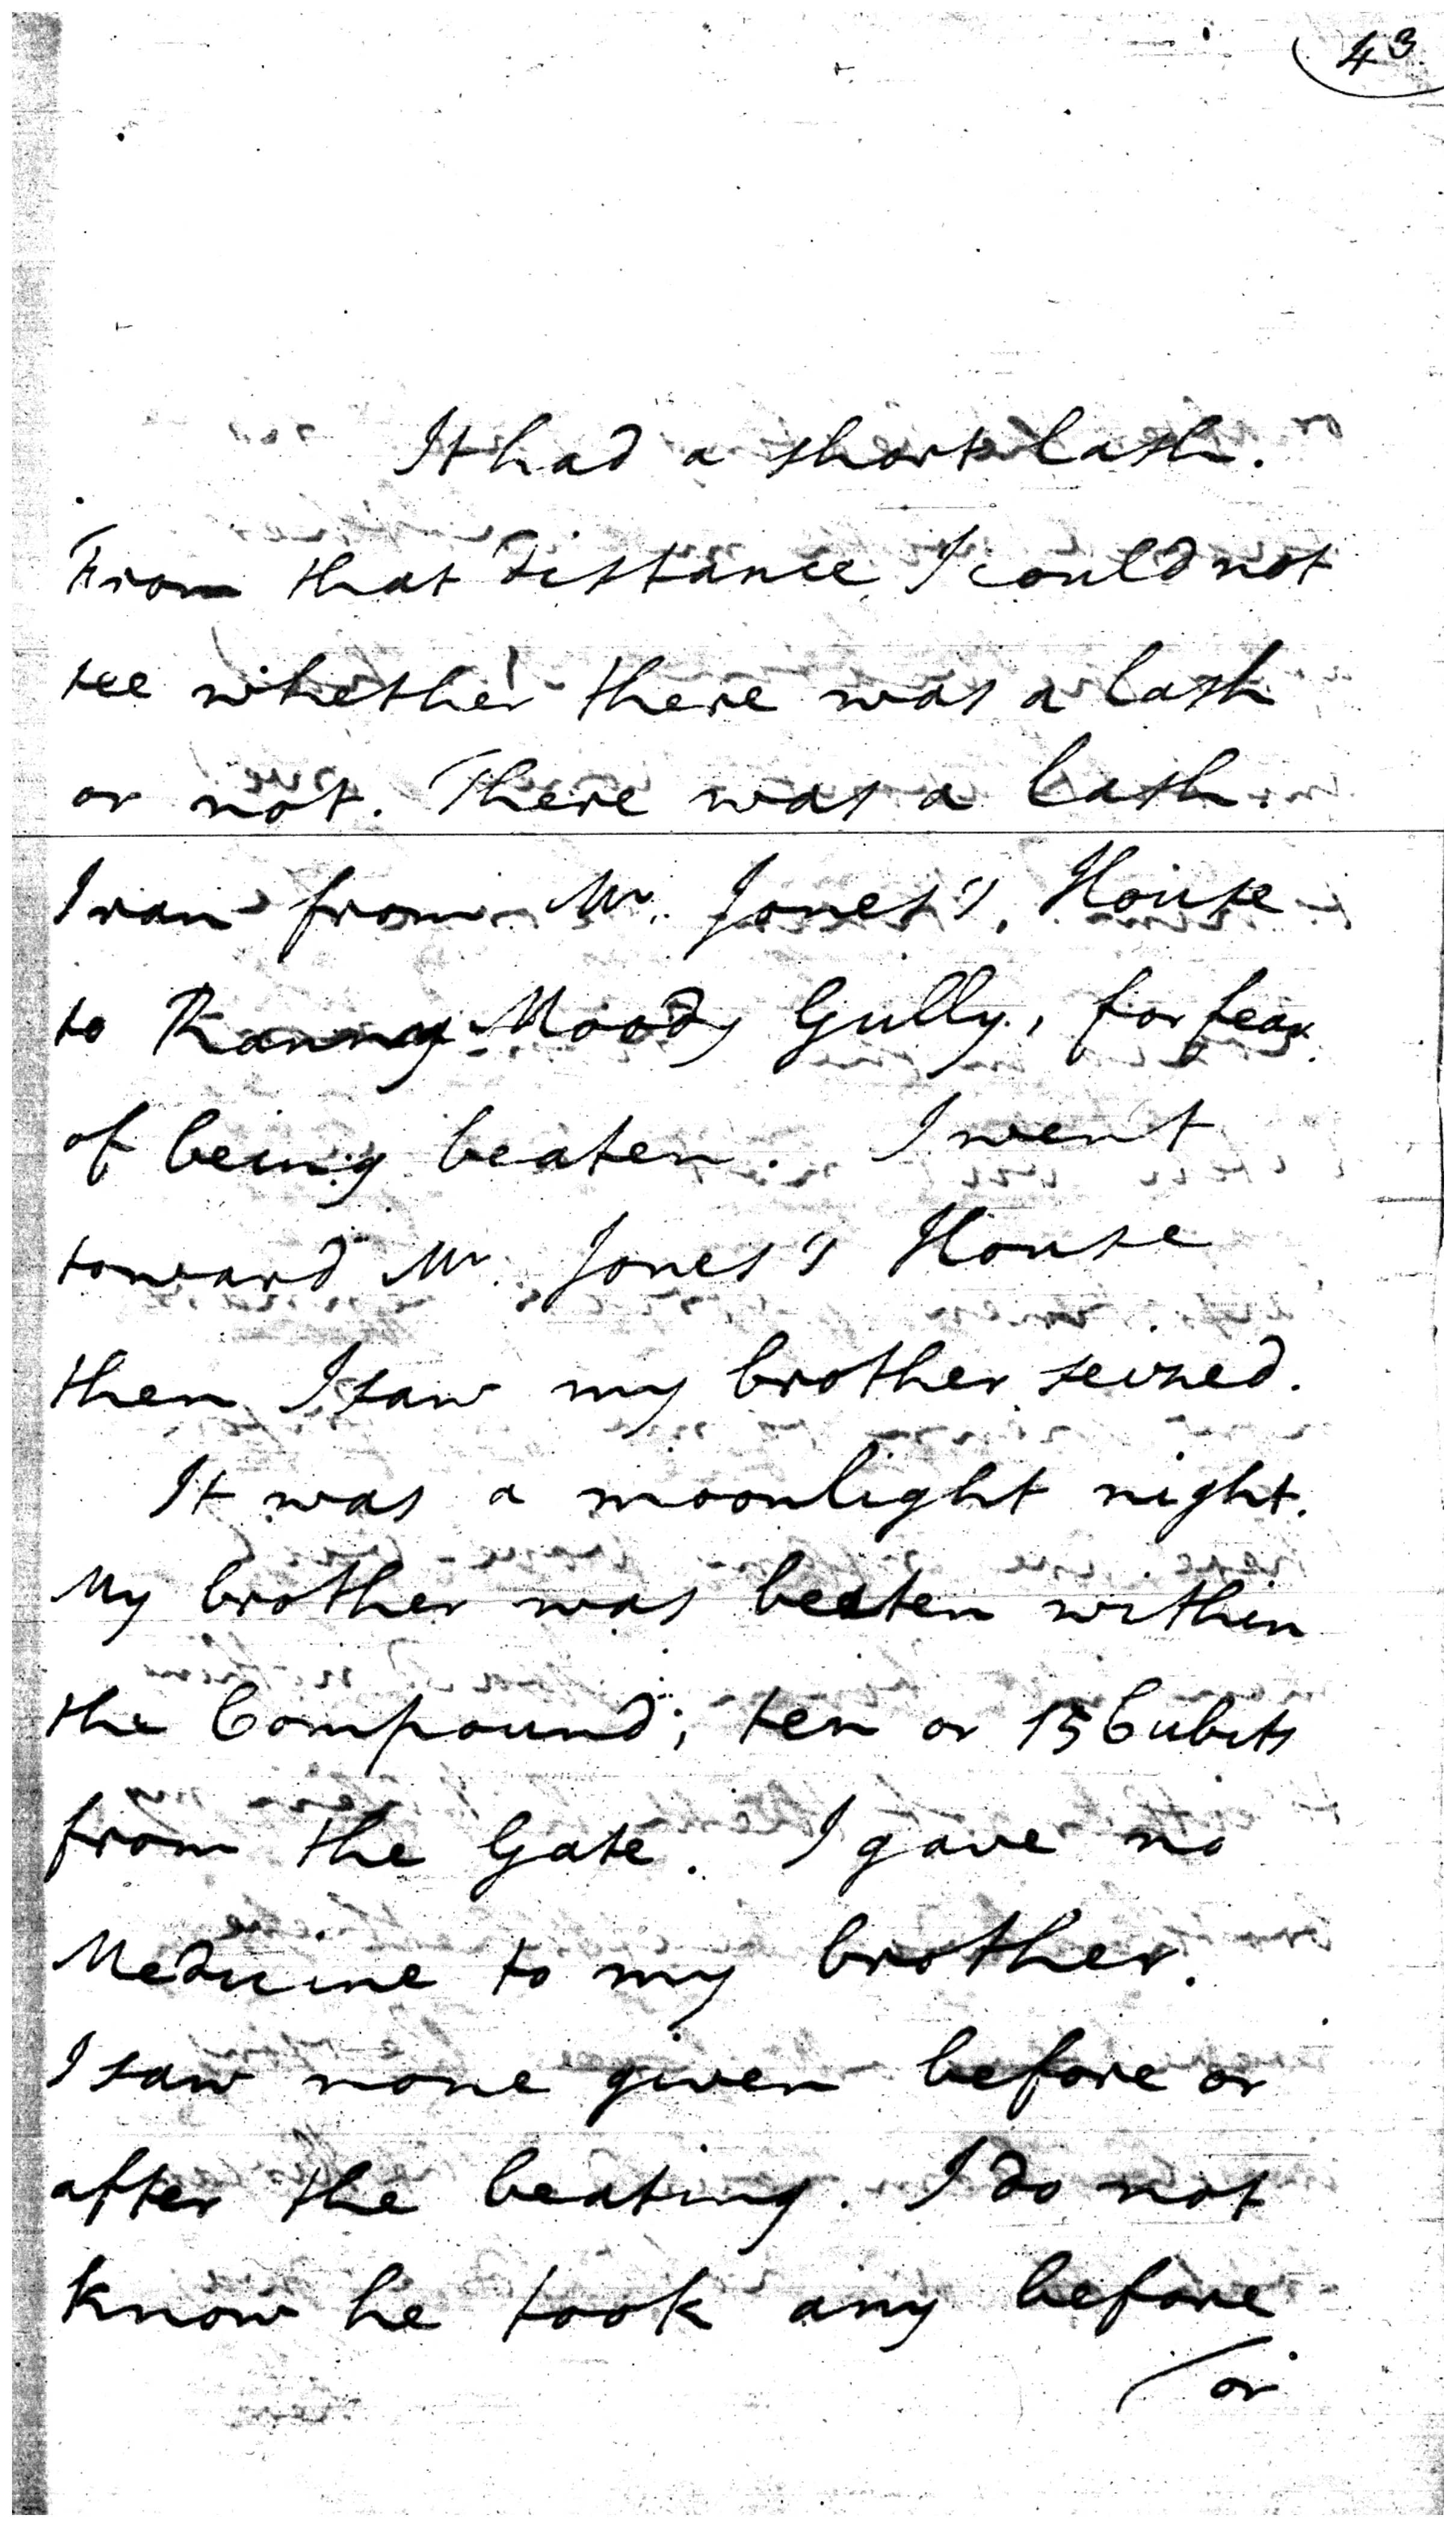 43
It had a short lash.
From that distance I could not
see whether there was a lash
or not. There was a lash.
I ran from Mr. Jones's House
to Ranny Moody Gully, for fear
of being beaten. I went
toward Mr. Jones's House
then I saw my brother seized.
It was a moonlight night.
My brother was beaten within
the Compound; ten or 15 Cubits
from the Gate. I gave no
Medicine to my brother.
I saw none given before or
after the beating. I do not
know he took any before
or